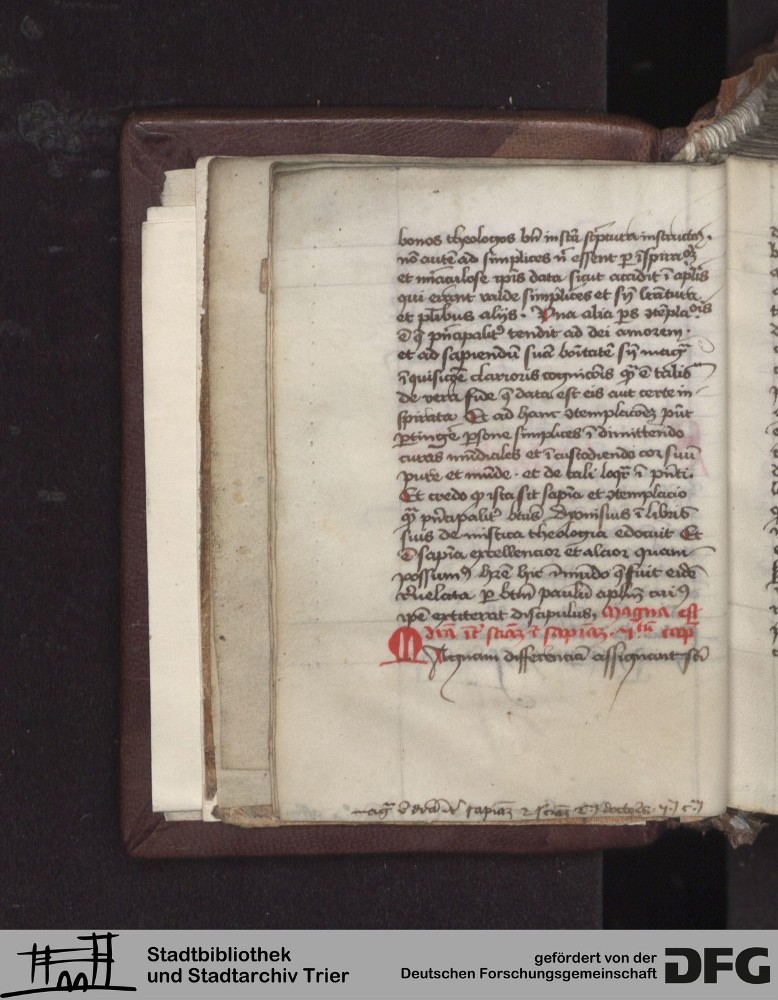 bonos theologos bn̄ in scā sc̄ptura instructos.
nō autē ad simplices n̄ essent ꝑ īspiracōꝫ
et miraculose ip̄is data sicut accidit ī ap̄lis
qui erant valde simplices et sn̄ lrātura
et pl̄ibus alijs. Una alia ps ꝯtēpla
ē q̄ pn̄cipalit᷑ tendit ad dei amorem.
et ad sapiendū suā boītatē sn̄ mag
īquisicōe clarioris cognicōis qꝫ ē talis
de vera fide q̄ data est eis aut certe in
spirata Et ad hanc ꝯtemplacōeꝫ pn̄t
ꝑtingē ꝑsone simplices ī dimittendo
curas mūdiales et ī custodiendo cor suū
pure et mūde. et de tali loqr̄ ī pn̄ti.
Et credo ꝙ ista sit sapīa et ꝯtemplacio
quā pn̄cipalit᷑ btūs dyonisius ī libris
suis de mistica theologia edocuit Et
ē sapīa excellencior et alcior quam
possumꝰ hr̄e hic ī mūdo q̄ fuit eidē
revelata ꝑ btm̄ paulū ap̄lm̄ cuiꝰ
ip̄e extiterat discipulus, Magna est
dr̄ia īt᷑ sciāꝫ ⁊ sapiāꝫ. cap̄
Aliquam differenciā assignant sc̄i
mag dr̄ia īt᷑ sapiāꝫ ⁊ sciāꝫ doctores
Stadtbibliothek
und Stadtarchiv Trier
gefördert von der
Deutschen Forschungsgemeinschaft
DFG